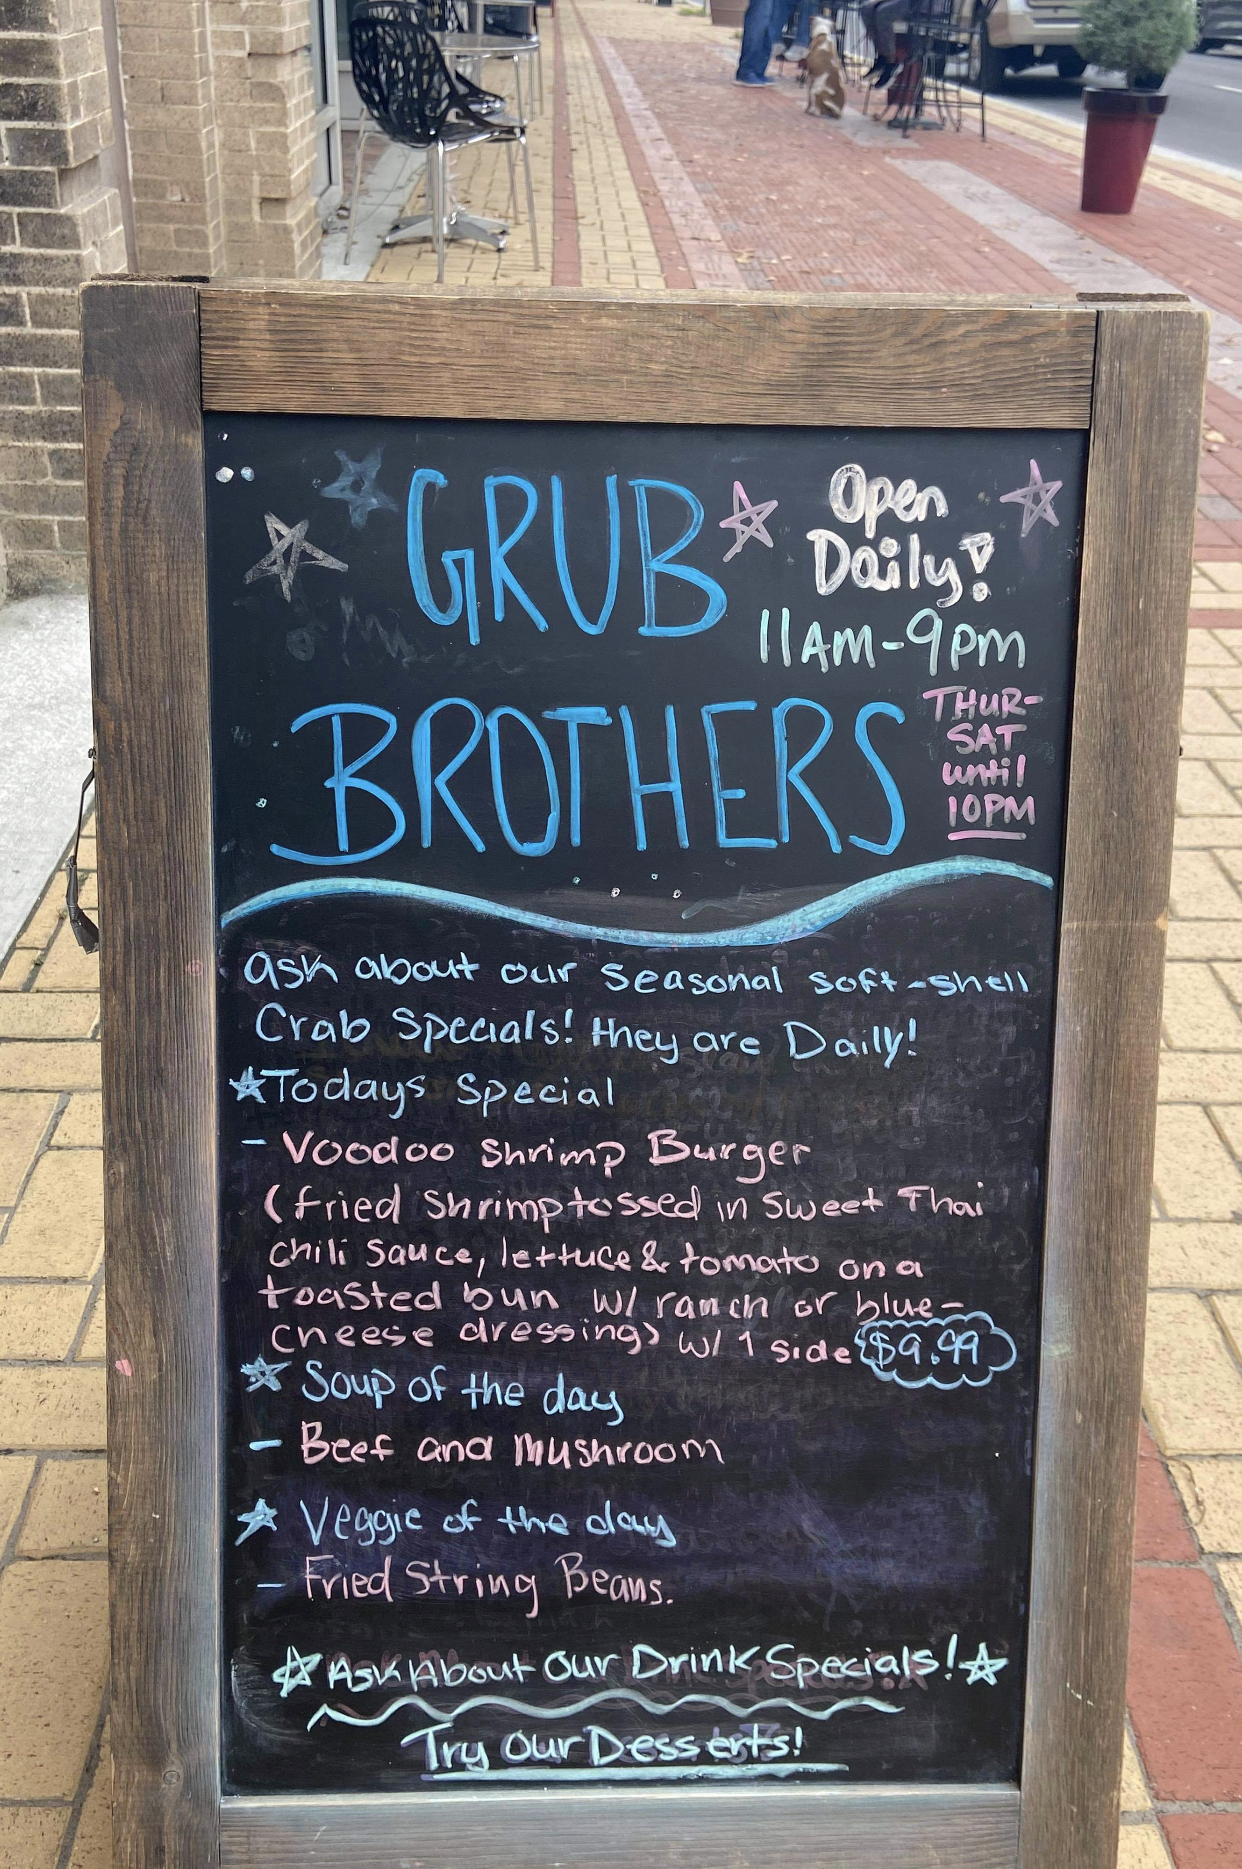 GRUB
BROTHERS
Open
Daily!
11AM-9pm
THUR-
SAT
until
10PM
Ask about our seasonal soft-shell
Crab Specials! they are Daily!
Todays Special
- Voodoo Shrimp Burger
(fried shrimp tossed in sweet Thai
chili sauce, lettuce & tomato on a
toasted bun w/ ranch or blue-
cheese dressing) w/ 1 side $9.99
Soup of the day
- Beef and Mushroom
Veggie of the day
- Fried String Beans.
Ask About Our Drink Specials!
Try Our Desserts!